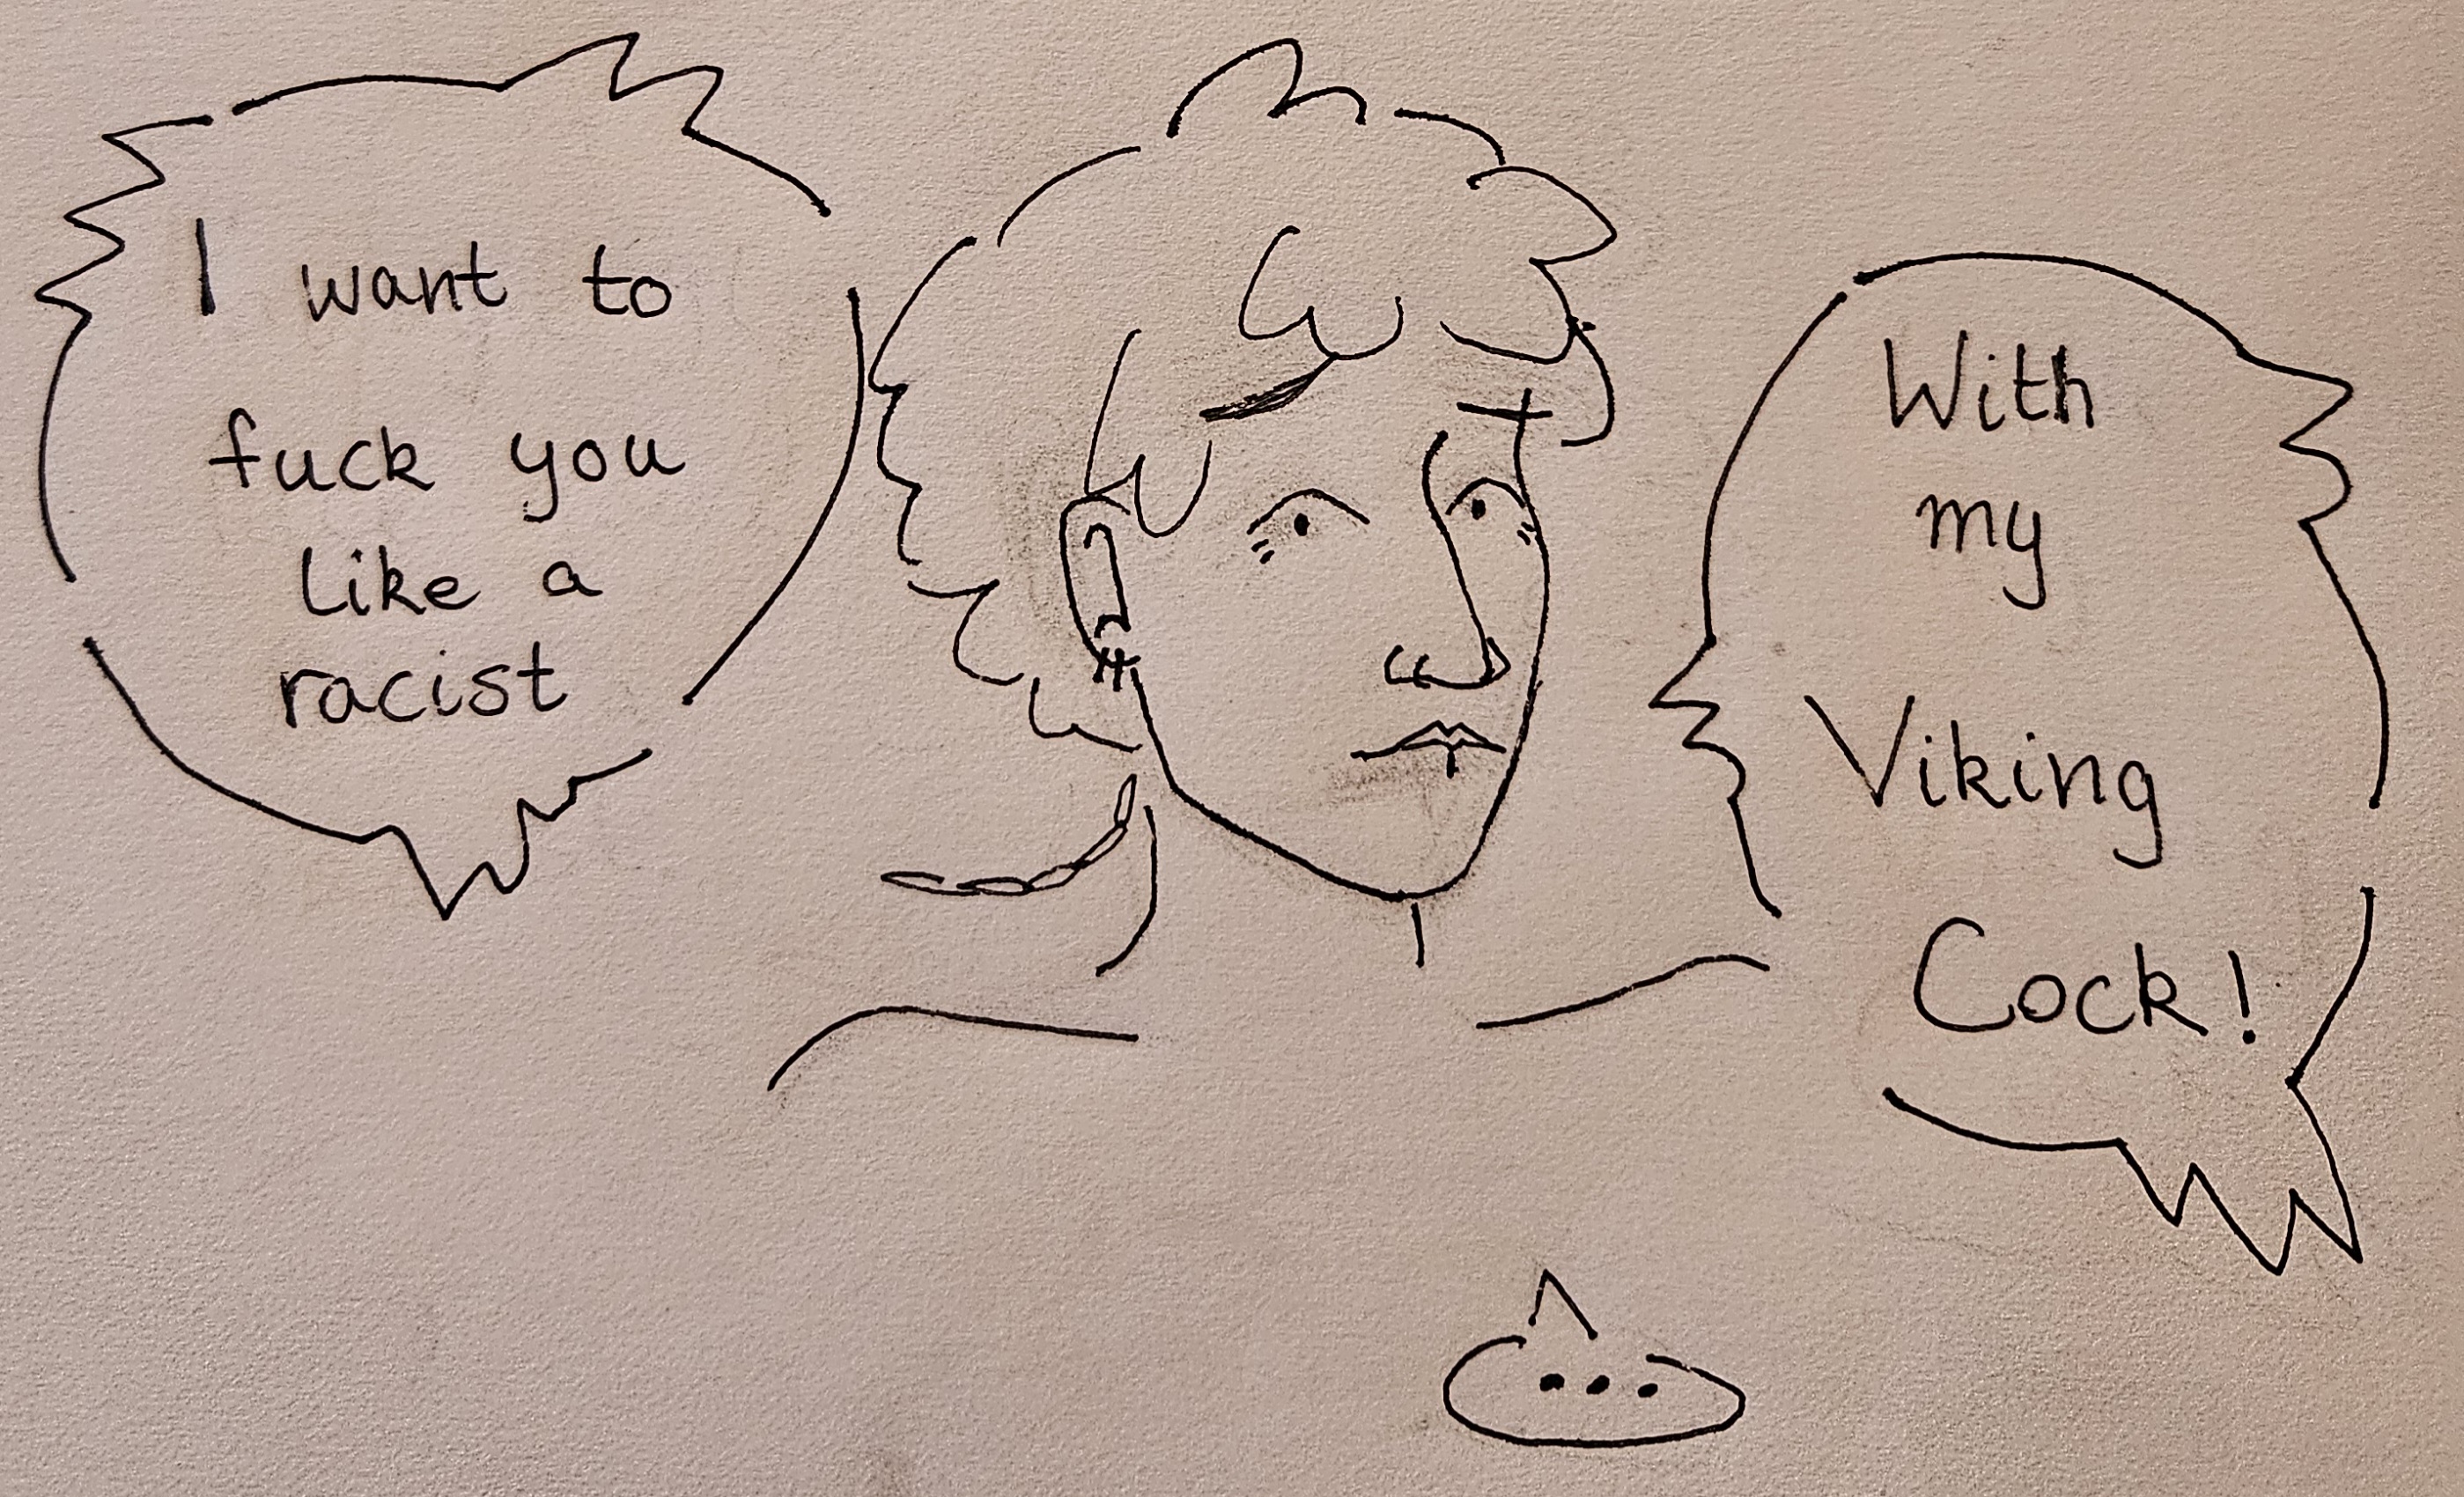 I want to
fuck you
like a
racist
With
my
Viking
Cock!
...